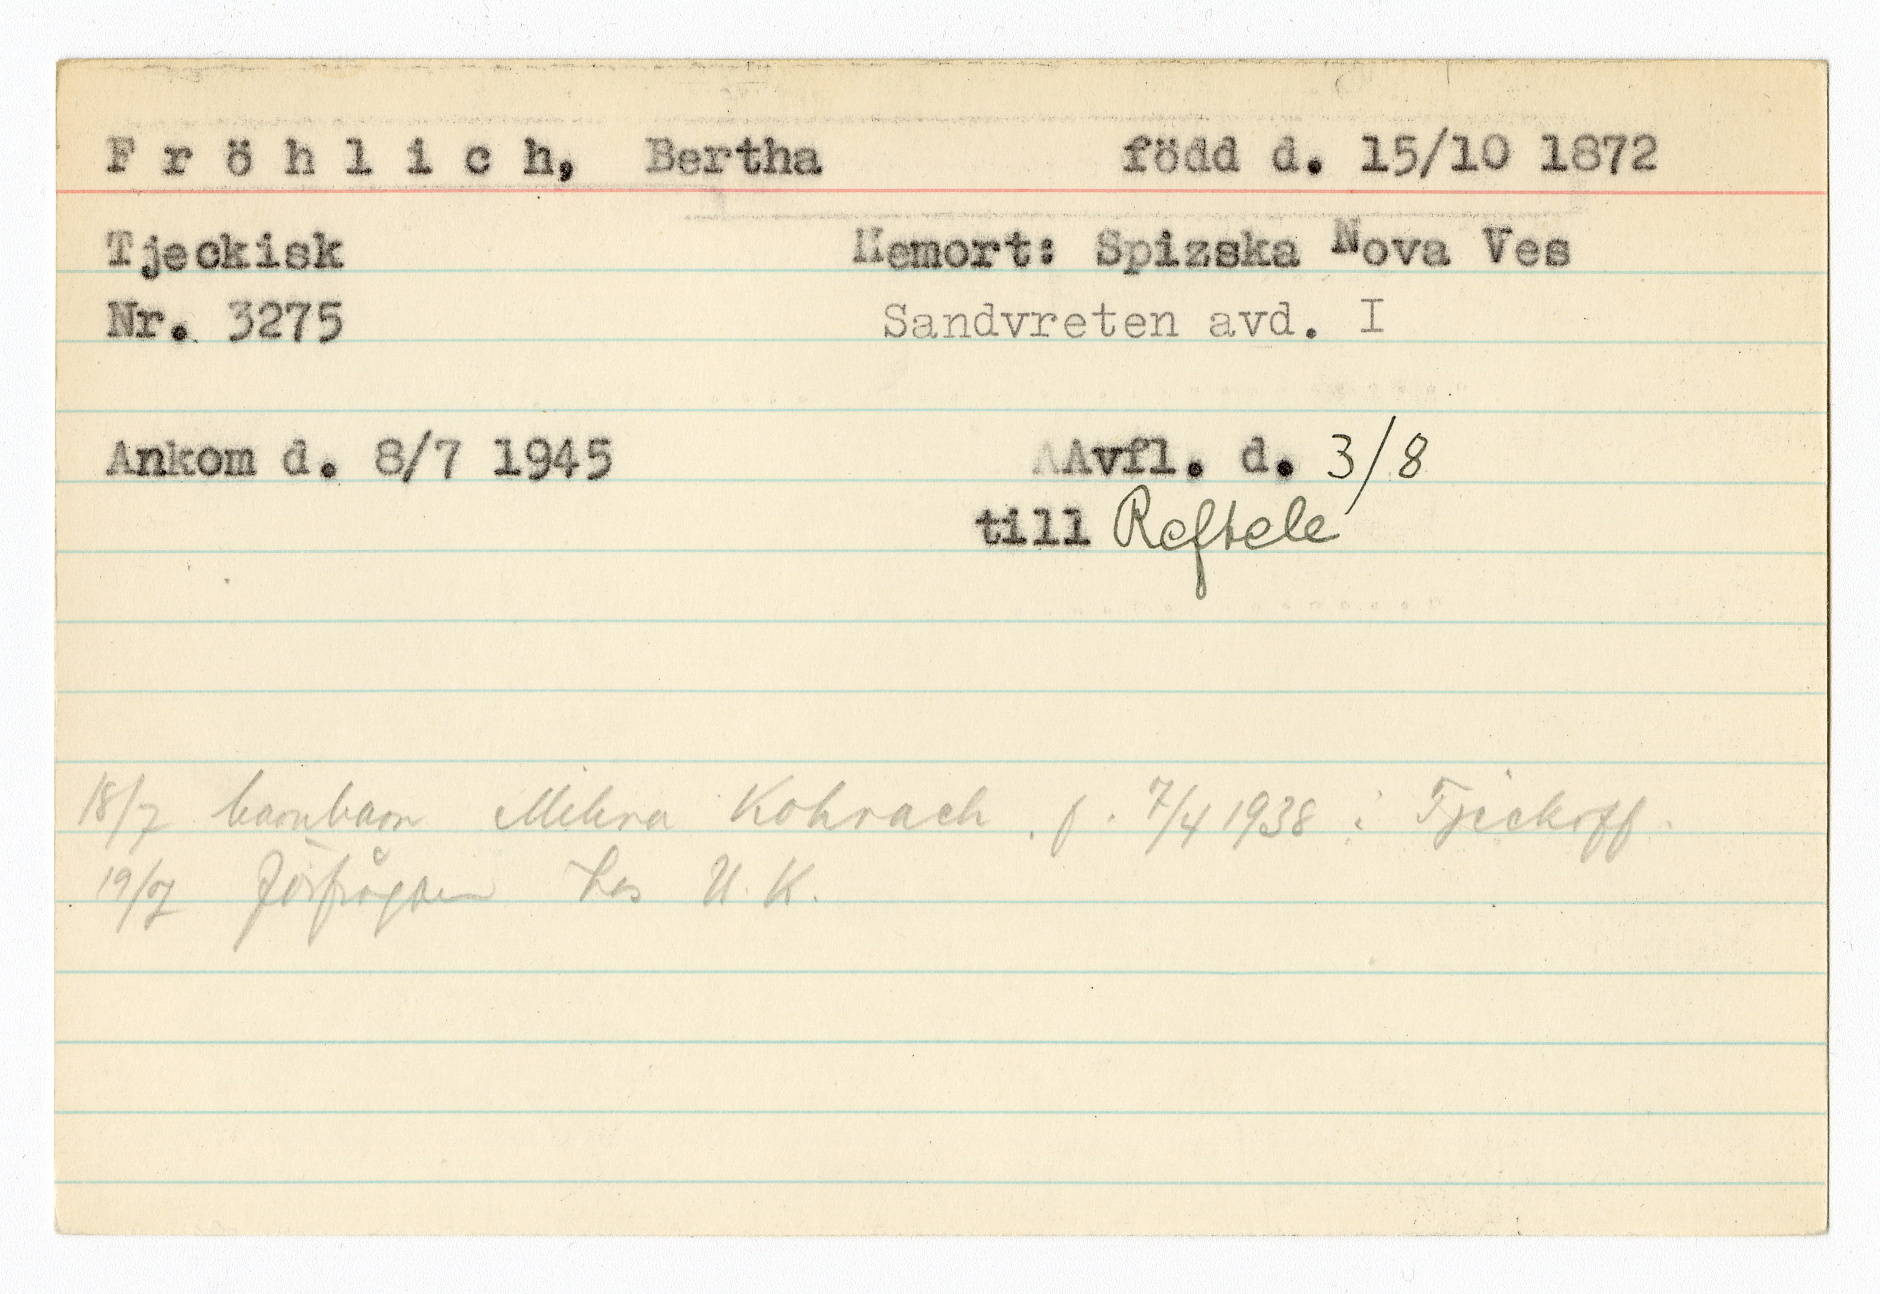 Fröhlich, Bertha född d. 15/10 1872
Tjeckisk Hemort: Spizska Nova Ves
Nr. 3275 Sandvreten avd. I
Ankom d. 8/7 1945 AAvfl. d. 3/8
till Reftele
18/7 barnbarn Kohnach . f. 7/4 1938 i
19/7 Förfrågan hos U.K.